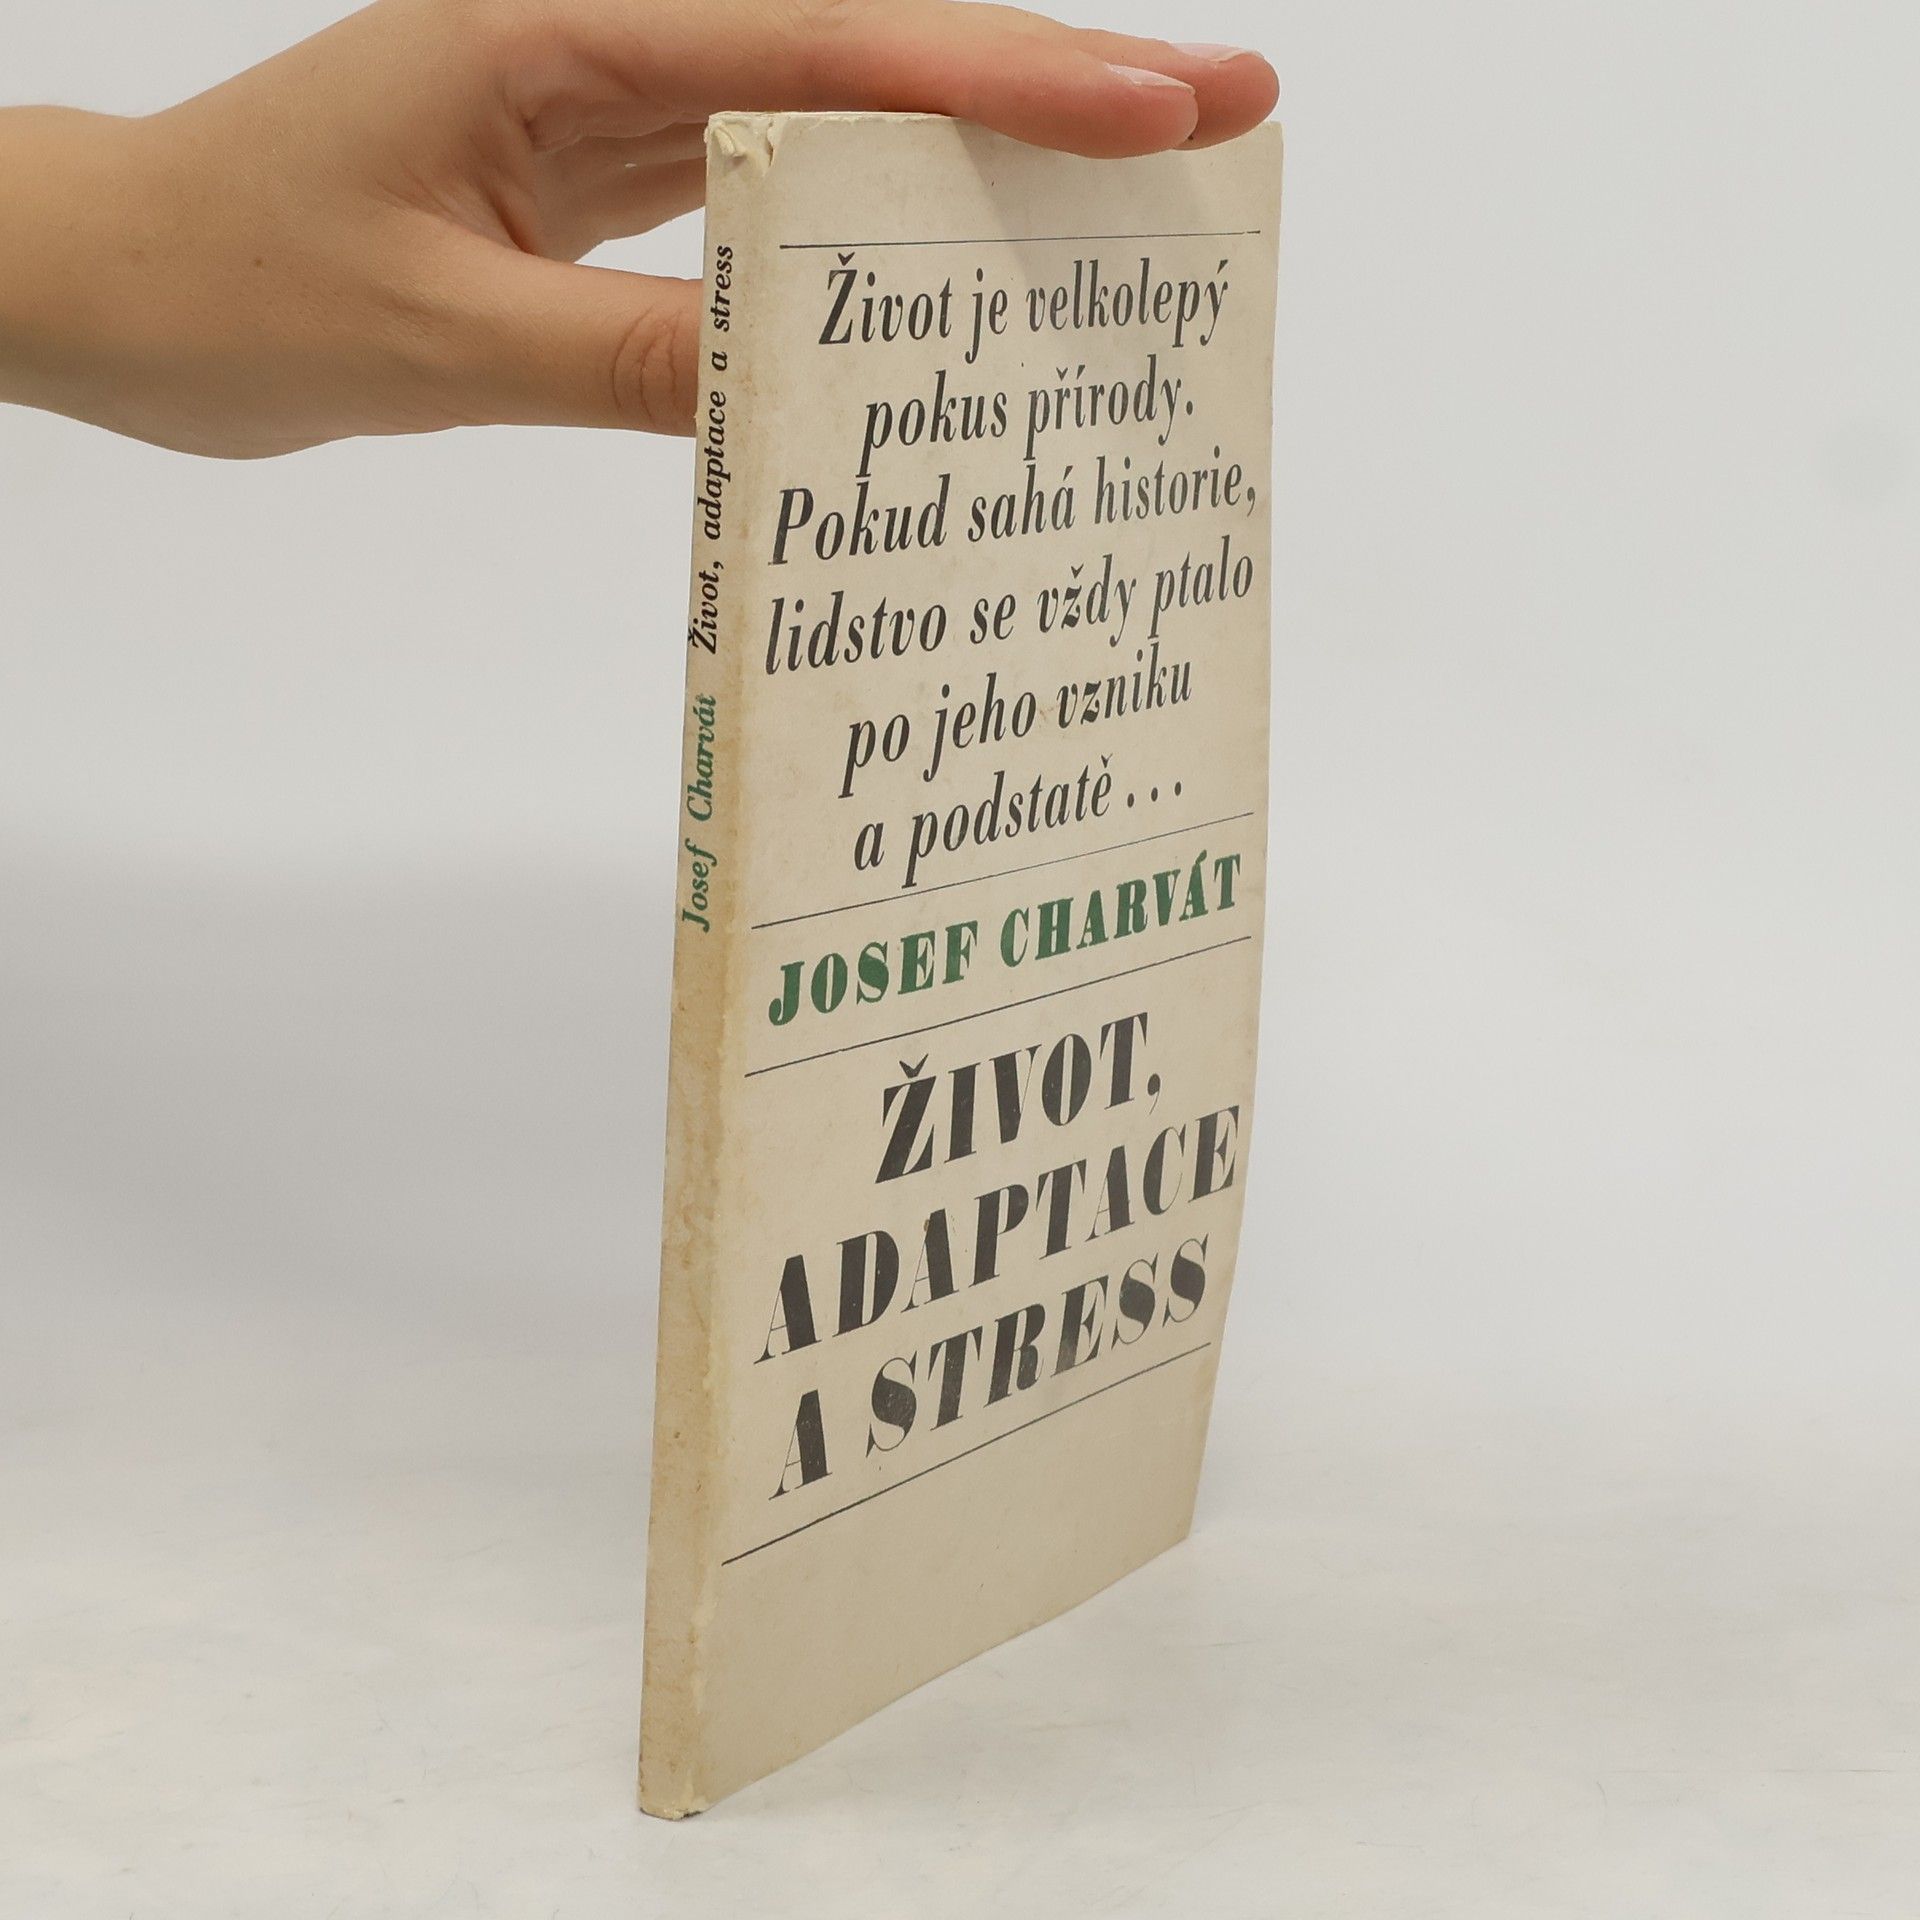 Josef Charvát Život, adaptace a stress
Život je velkolepý
pokus přírody.
Pokud sahá historie,
lidstvo se vždy ptalo
po jeho vzniku
a podstatě...
JOSEF CHARVÁT
ŽIVOT,
ADAPTACE
A STRESS